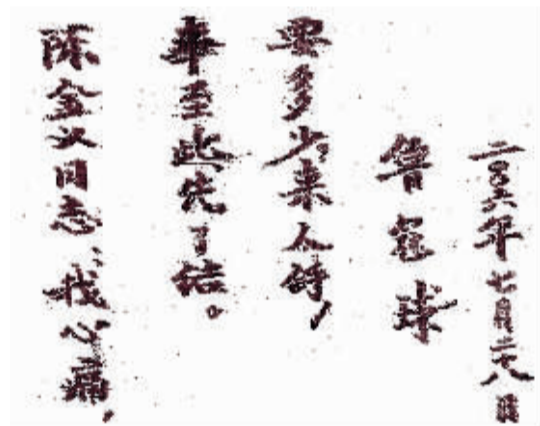 陈金义同志、我心痛,
事至此先了结。
要多少来人
鲁冠球
二〇〇八年七月二十八日